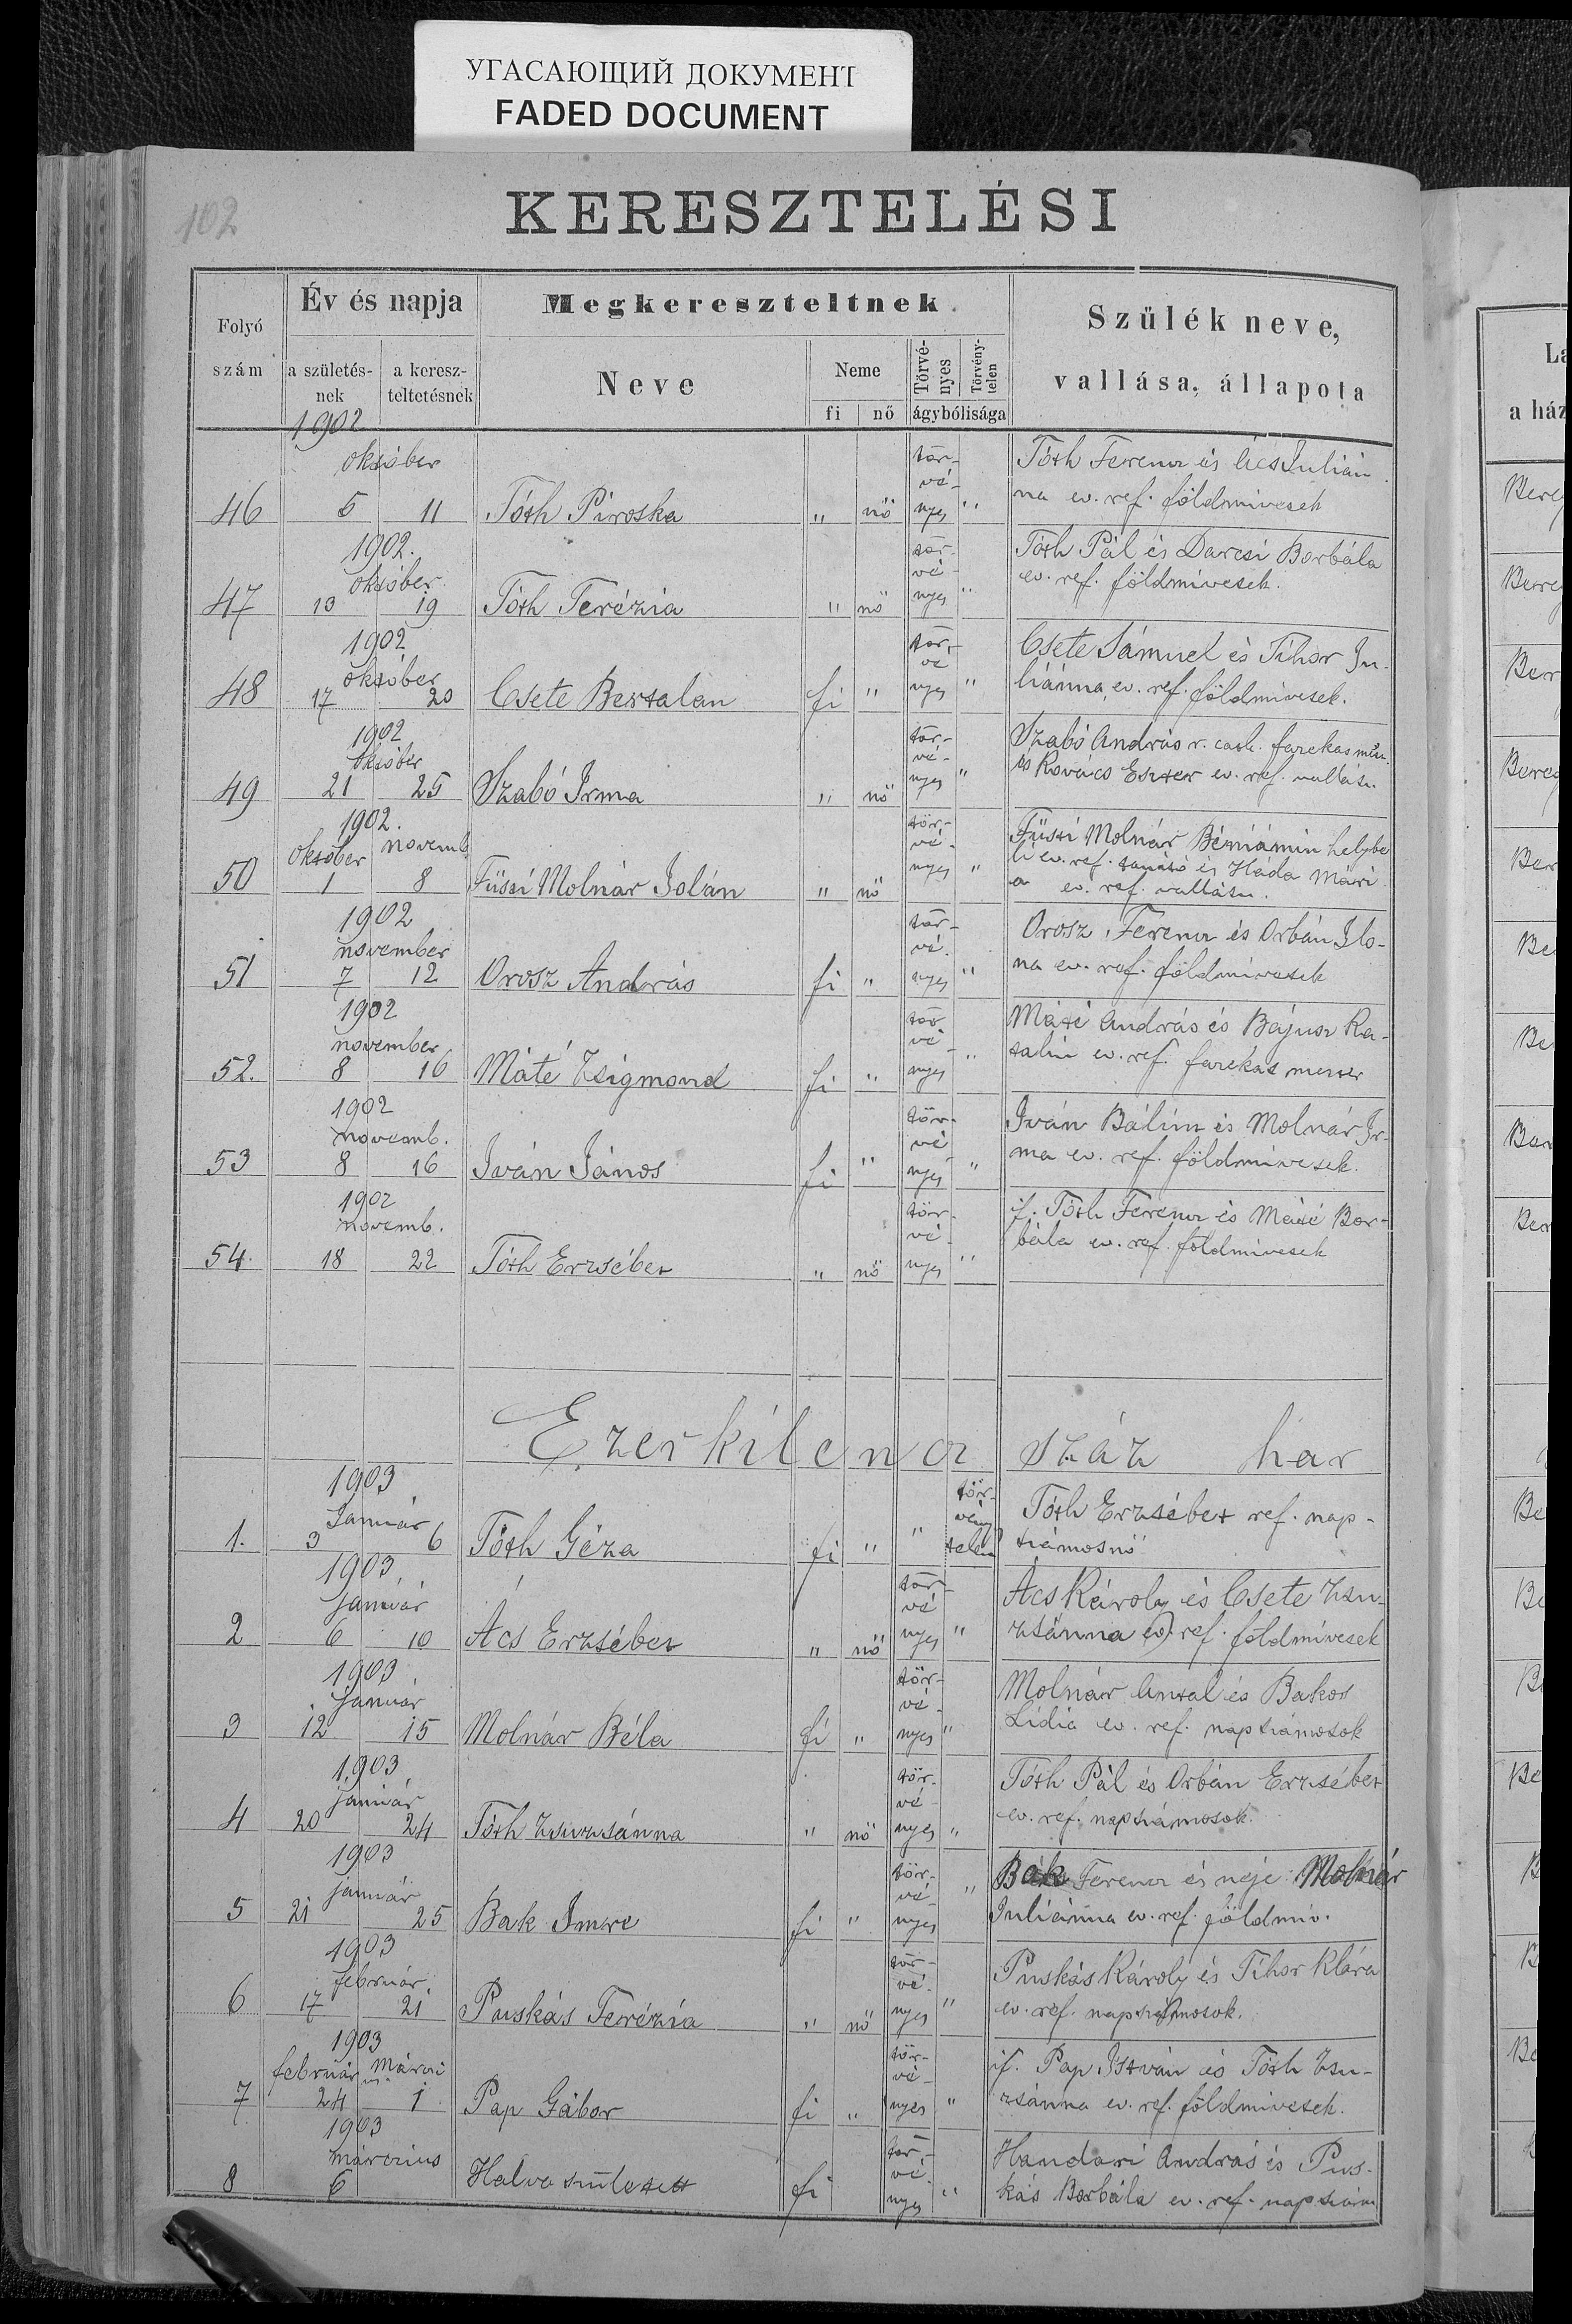 УГАСАЮЩИЙ ДОКУМЕНТ
FADED DOCUMENT
102
KERESZTELÉSI
Folyó szám
Év és napja
a születés-nek
a keresz-teltetésnek
Megkereszteltnek.
Neve
Neme
fi nő
Törvé-nyes
Törvény-telen
ágybólisága
Szülék neve,
vallása, állapota
1902
október
46 5 11 Tóth Piroska " nő tör-vé-nyes "
Tóth Ferencz és Ács Julián
na ev. ref. földmívesek
1902.
október
47 13 19 Tóth Terézia " nő tör-vé-nyes "
Tóth Pál és Darcsi Borbála
ev. ref. földmívesek.
1902
október
48 17 20 Csete Bertalan fi " tör-vé nyes "
Csete Sámuel és Tihor Ju-
liánna ev. ref. földmívesek.
1902
október
49 21 25 Szabó Irma " nő tör-vé-nyes "
Szabó András r. cath. fazekas
és Kovács Eszter ev. ref. vallásu.
1902.
október novemb
50 1 8 Füssi Molnár Jolán " nő tör-vé-nyes "
Füssi Molnár Béniámin helybe
li ev. ref. tanító és Háda Mári
a ev. ref. vallásu.
1902
november
51 7 12 Orosz András fi " tör-vé-nyes "
Orosz Ferencz és Orbán Ilo-
na ev. ref. földmívesek
1902
november
52. 8 16 Máté Zsigmond fi " tör vé-nyes "
Máté András és Bájusz Ka-
talin ev. ref. fazekas mester
1902
novemb.
53 8 16 Iván János fi " tör-vé nyes "
Iván Bálint és Molnár Ir-
ma ev. ref. földmívesek.
1902
novemb.
54. 18 22 Tóth Erzsébet " nő tör-vé-nyes "
if. Tóth Ferencz és Máté Bor-
bála ev. ref. földmívesek
Ezerkilencz száz har
1903
Január
1. 3 6 Tóth Géza fi " " tör-vény telen
Tóth Erzsébet ref. nap-
számosnő
1903.
január
2 6 10 Ács Erzsébet " nő tör-vé nyes "
Ács Károly és Csete Zsu-
zsánna ev. ref. földmívesek
1903.
január
3 12 15 Molnár Béla fi " tör-vé-nyes "
Molnár Antal és Bakos
Lídia ev. ref. napszámosok
1903.
január
4 20 24 Tóth Zsuzsánna " nő tör-vé-nyes "
Tóth Pál és Orbán Erzsébet
ev. ref. napszámosok.
1903
január
5 21 25 Bak Imre fi " tör-vé nyes "
Bak Ferencz és neje Molnár
Juliánna ev. ref. földmiv.
1903
február
6 17 21 Puskás Terézia " nő tör-vé-nyes "
Puskás Károly és Tihor Klára
ev. ref. napszámosok.
1903
február márci
us
7 24 1 Pap Gábor fi " tör-vé-nyes "
if. Pap István és Tóth Zsu-
zsánna ev. ref. földmívesek.
1903
márczius
8 6 Halva született fi tör-vé-nyes "
Handari András és Pus-
kás Borbála ev. ref. napszám
La
a ház
Bereg
Bereg
Ber
Bereg
Ber
Be
Be
Ber
Ber
Be
Be
B
Be
B
B
Be